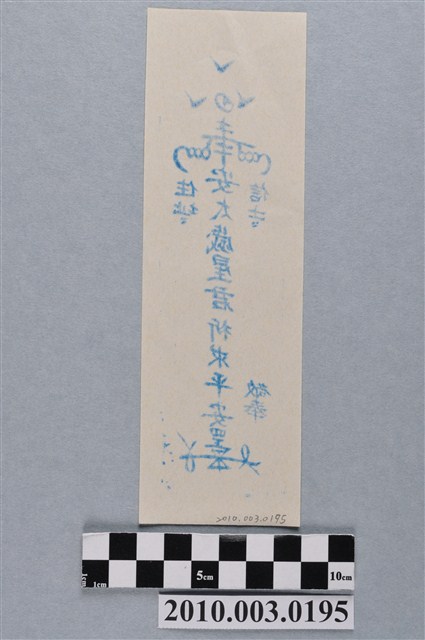 信士
敬奉
奉安太歲星君祈求平安
住址
2010.003.0195
1cm 5cm 10cm
2010.003.0195